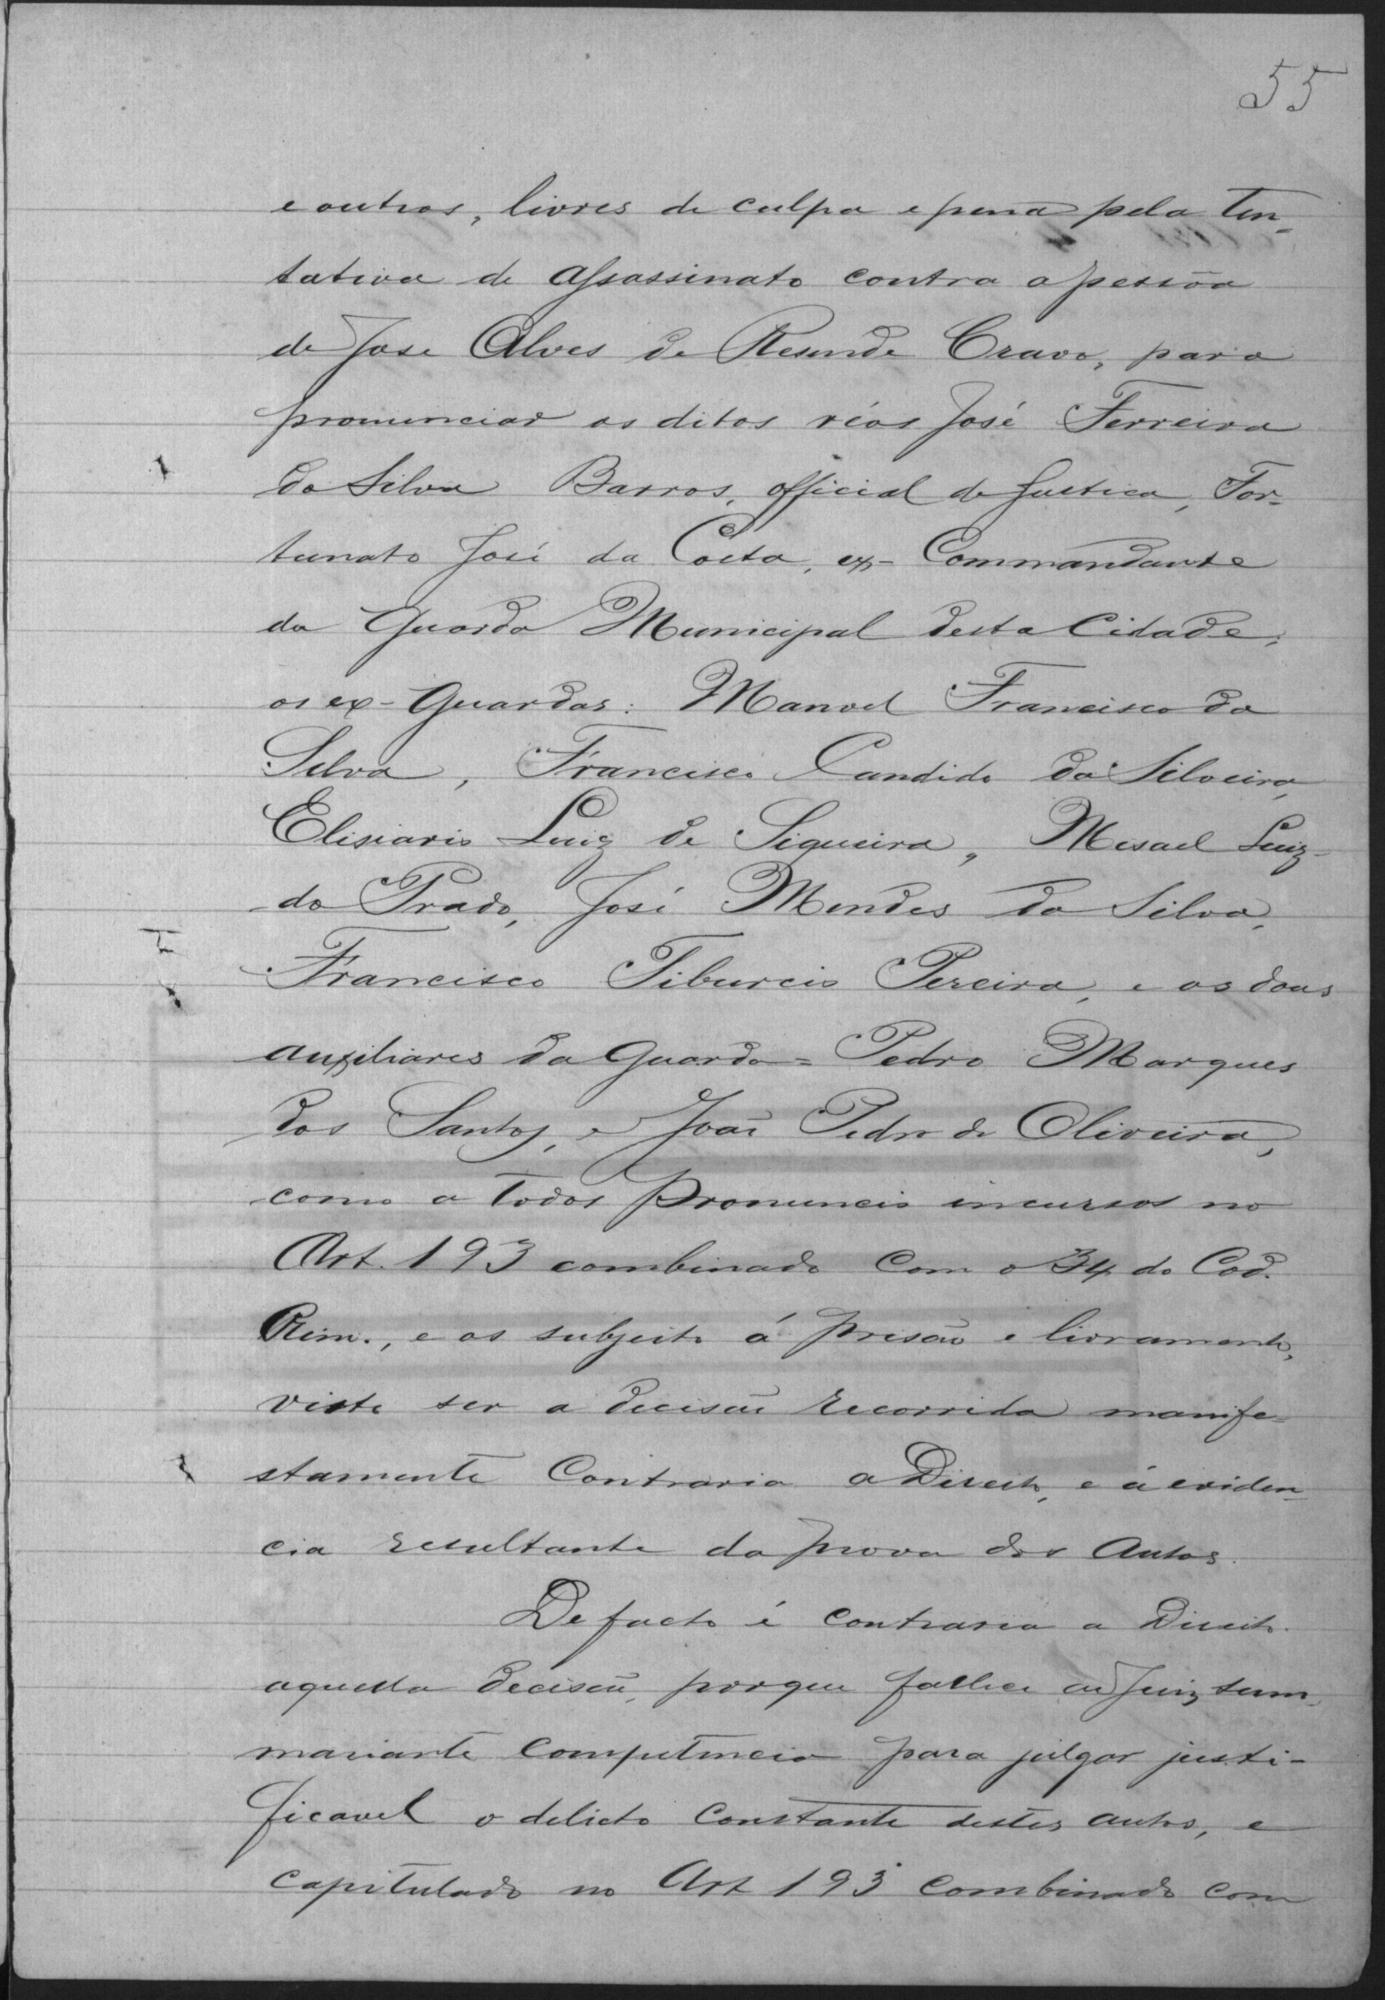 55
e outros, livres de culpa e pena pela ten-
tativa de assassinato contra a pessôa
de Jose Alves de Resende Cravo, para
pronunciar os ditos réos José Ferreira
da Silva Barros, official de Justica, For-
tunato José da Costa, ex-Commandante
da Guarda Municipal desta Cidade,
os ex-Guardas: Manoel Francisco da
Silva, Francisco Candido da Silveira,
Elisiario Luiz de Siqueira, Misael Luiz
do Prado, José Mendes da Silva,
Francisco Tiburcio Pereira, e os dous
auxiliares da Guarda = Pedro Marques
dos Santos, e João Pedro de Oliveira,
como a todos pronuncio incursos no
Art. 193 combinado com o 34 do Cod.
Crim., e os subjeito á prisão e livramento,
visto ser a decisão recorrida manife-
stamente contraria a Direito, e á eviden-
cia resultante da prova dos autos.
De facto é contraria a Direito
aquella decisão, porque fallece ao Juiz sum-
mariante competencia para julgar justi-
ficavel o delicto constante destes autos, e
capitulado no Art 193 combinado com